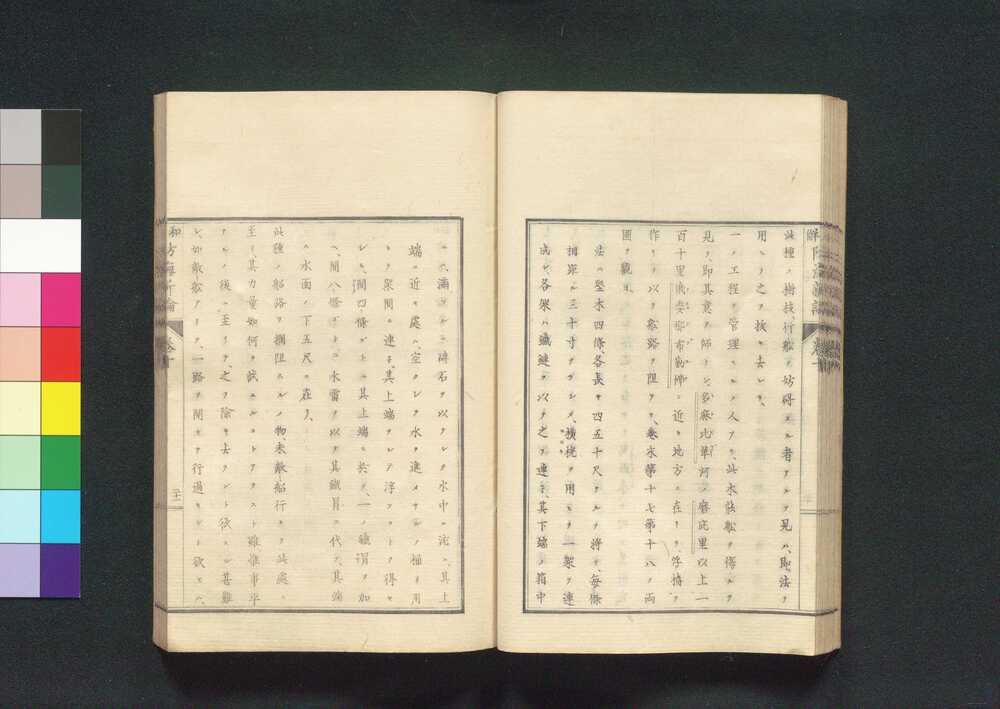 此種ノ樹技、行船ヲ妨碍スル者アルヲ見ハ、即法ヲ
用ヰテ之ヲ拔キ去レリ、
一ノ工程ヲ管理スルノ人アリ、此木能船ヲ傷ルヲ
見テ、即其意ヲ師トシ、多麻比革河ノ磨庇里以上一
百十里
近キ地方ニ在リテ、浮樁ヲ
作リテ以テ船路ヲ阻ク、卷末第十七第十八ノ兩
圖ヲ觀ヨ、
法ハ堅木四條、各長サ四五十尺ナルヲ將テ、每條
相距ル三十寸ナラシメ、橫桄ヲ用ヰテ一架ヲ連
成シ、各架ハ鐵鏈ヲ以テ之ヲ連子、其下端ノ箱中
ニハ、滿
碎石ヲ以テシテ水中ニ沈メ、其上
端ニ近キ處ハ、空クシテ水ヲ進メサルノ桶ヲ用
テ架間ニ連子、其上端ヲシテ浮フコトヲ得セ
シム、間四條ゴトニ其上端ニ於テ、一ノ鐵帽ヲ加
ヘ、間八檔ゴトニ水雷ヲ以テ其鐵冒ニ代フ、其端
ハ水面ノ下五尺ニ在リ、
此種ノ船路ヲ攔阻スルノ物、未敵船行テ此處ニ
至テ其力量如何ヲ試ミルコトアラスト雖、惟事平
クルノ後ニ至リテ、之ヲ除キ去ラント欲スルニ甚難
シ、如敵船アリテ、一路ヲ開キテ行過セント欲セハ、
防海新論
卷十